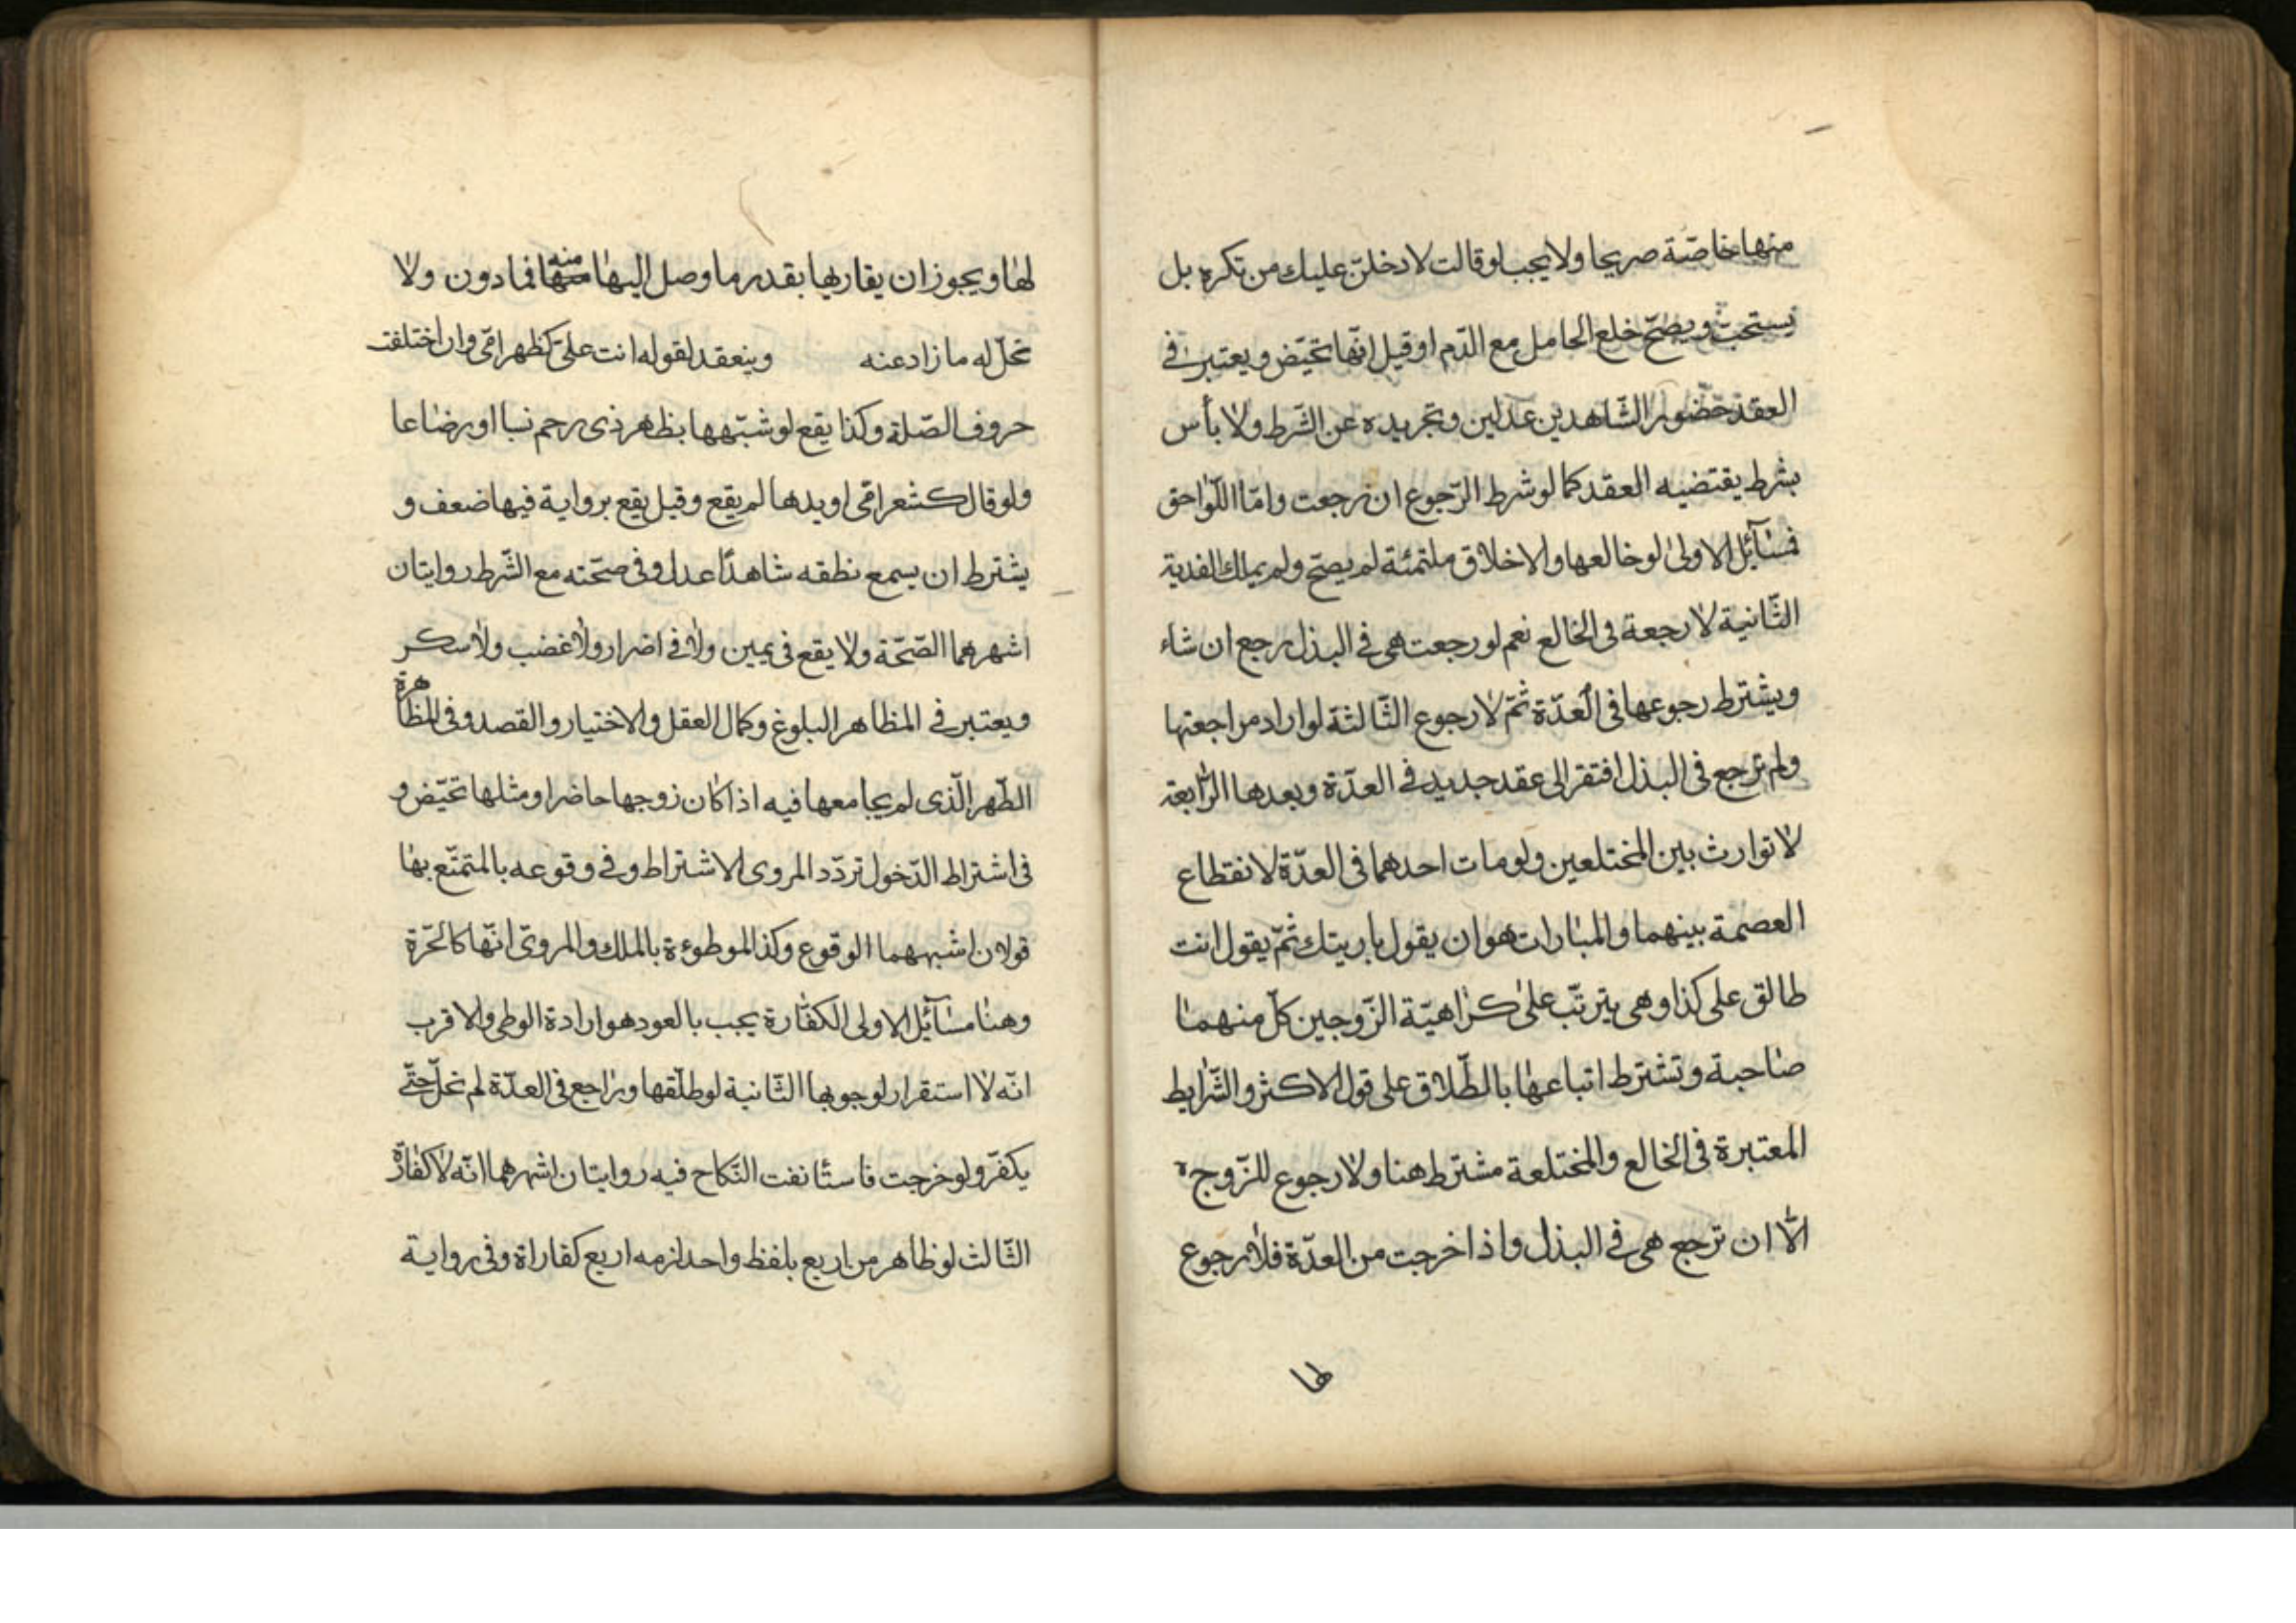 منها خاصّة صريحا ولا يجب لو قالت لا دخلنّ عليك من تكره بل
يستحبّ ويصحّ خلع الحامل مع الدّم او قيل انّها تحيّض ويعتبر في
العقد حضور الشّاهدين عدلين وتجريده عن الشّرط ولا بأس
بشرط يقتضيه العقد كما لو شرط الرّجوع ان رجعت وامّا اللّواحق
فمسآئل الاولى لو خالعها والاخلاق ملتمئة لم يصحّ ولم يملك الفدية
الثّانية لا رجعة في الخالع نعم لو رجعت هي في البذل رجع ان شاء
ويشترط رجوعها في العدّة ثمّ لا رجوع الثّالثة لو اراد مراجعتها
ولم ترجع في البذل افتقر الى عقد جديد في العدّة وبعدها الرّابعة
لا توارث بين المختلعين ولو مات احدهما في العدّة لانقطاع
العصمة بينهما والمبارات هو ان يقول باريتك ثمّ يقول انت
طالق على كذا وهي يترتّب على كراهيّة الزّوجين كلّ منهما
صاحبة وتشترط اتباعها بالطّلاق على قول الاكثر والشّرايط
المعتبرة في الخالع والمختلعة مشترط هنا ولا رجوع للزّوج
الّا ان ترجع هي في البذل واذا خرجت من العدّة فلا رجوع
لها
لها ويجوز ان يقاريها بقدر ما وصل اليها منه فما دون ولا
تحلّ له ما زاد عنه وينعقد لقوله انت علىّ كظهر امّي وان اختلفت
حروف الصّلة وكذا يقع لو شبّهها بظاهر ذي رحم نسبا او رضاعا
ولو قال كشعر امّي او يدها لم يقع وقيل يقع برواية فيها ضعف و
يشترط ان يسمع نطقه شاهدًا عدل وفي صحّته مع الشّرط روايتان
اشهرهما الصّحّة ولا يقع في يمين ولا في اضرار ولا غضب ولا سكر
ويعتبر في المظاهر البلوغ وكمال العقل والاختيار والقصد وفي المظاهرة
الطّهر الّذى لم يجامعها فيه اذا كان زوجها حاضرا ومثلها تحيّض و
في اشتراط الدّخول تردّد المروى الاشتراط وفي وقوعه بالمتمتّع بها
قولان اشبههما الوقوع وكذا الموطوءة بالملك والمروىّ انّها كالحّرة
وهنا مسآئل الاولى الكفّارة يجب بالعود هو ارادة الوطى والاقرب
انّه لا استقرار لوجوبها الثّانية لو طلّقها وراجع في العدّة لم تحلّ حتّى
يكفّر ولو خرجت فاستأنفت النّكاح فيه روايتان اشهرهما انّه لا كفّارة
الثّالث لو ظاهر من اربع بلفظ واحد لزمه اربع كفاراة وفي رواية